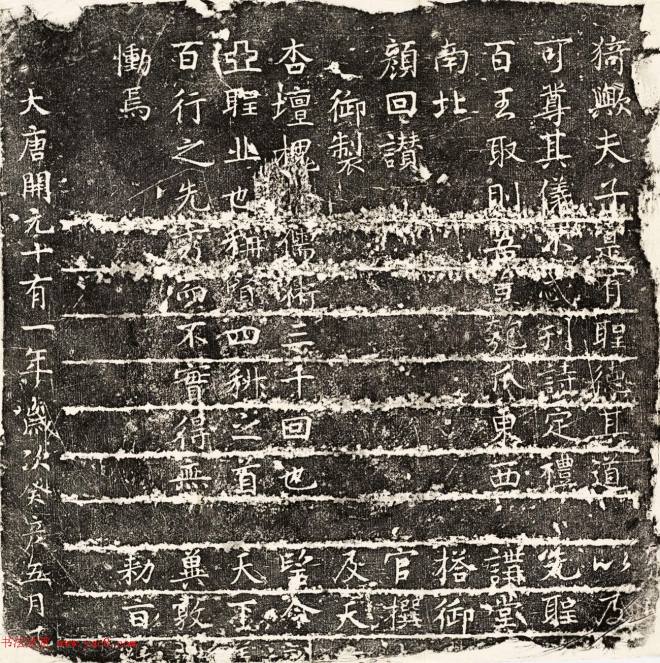 猗歟夫子是有聖德其道以及
可尊其儀不忒刊詩定禮先聖
百王取則吾豈匏瓜東西講堂
南北搭御
顏回讃官撰
御製及天
杏壇槐儒術三千回也令
亞聖丘也稱賢四科之首天
百行之先秀而不實得無冀敦
慟焉勅百
大唐開元十有一年歲次癸亥五月